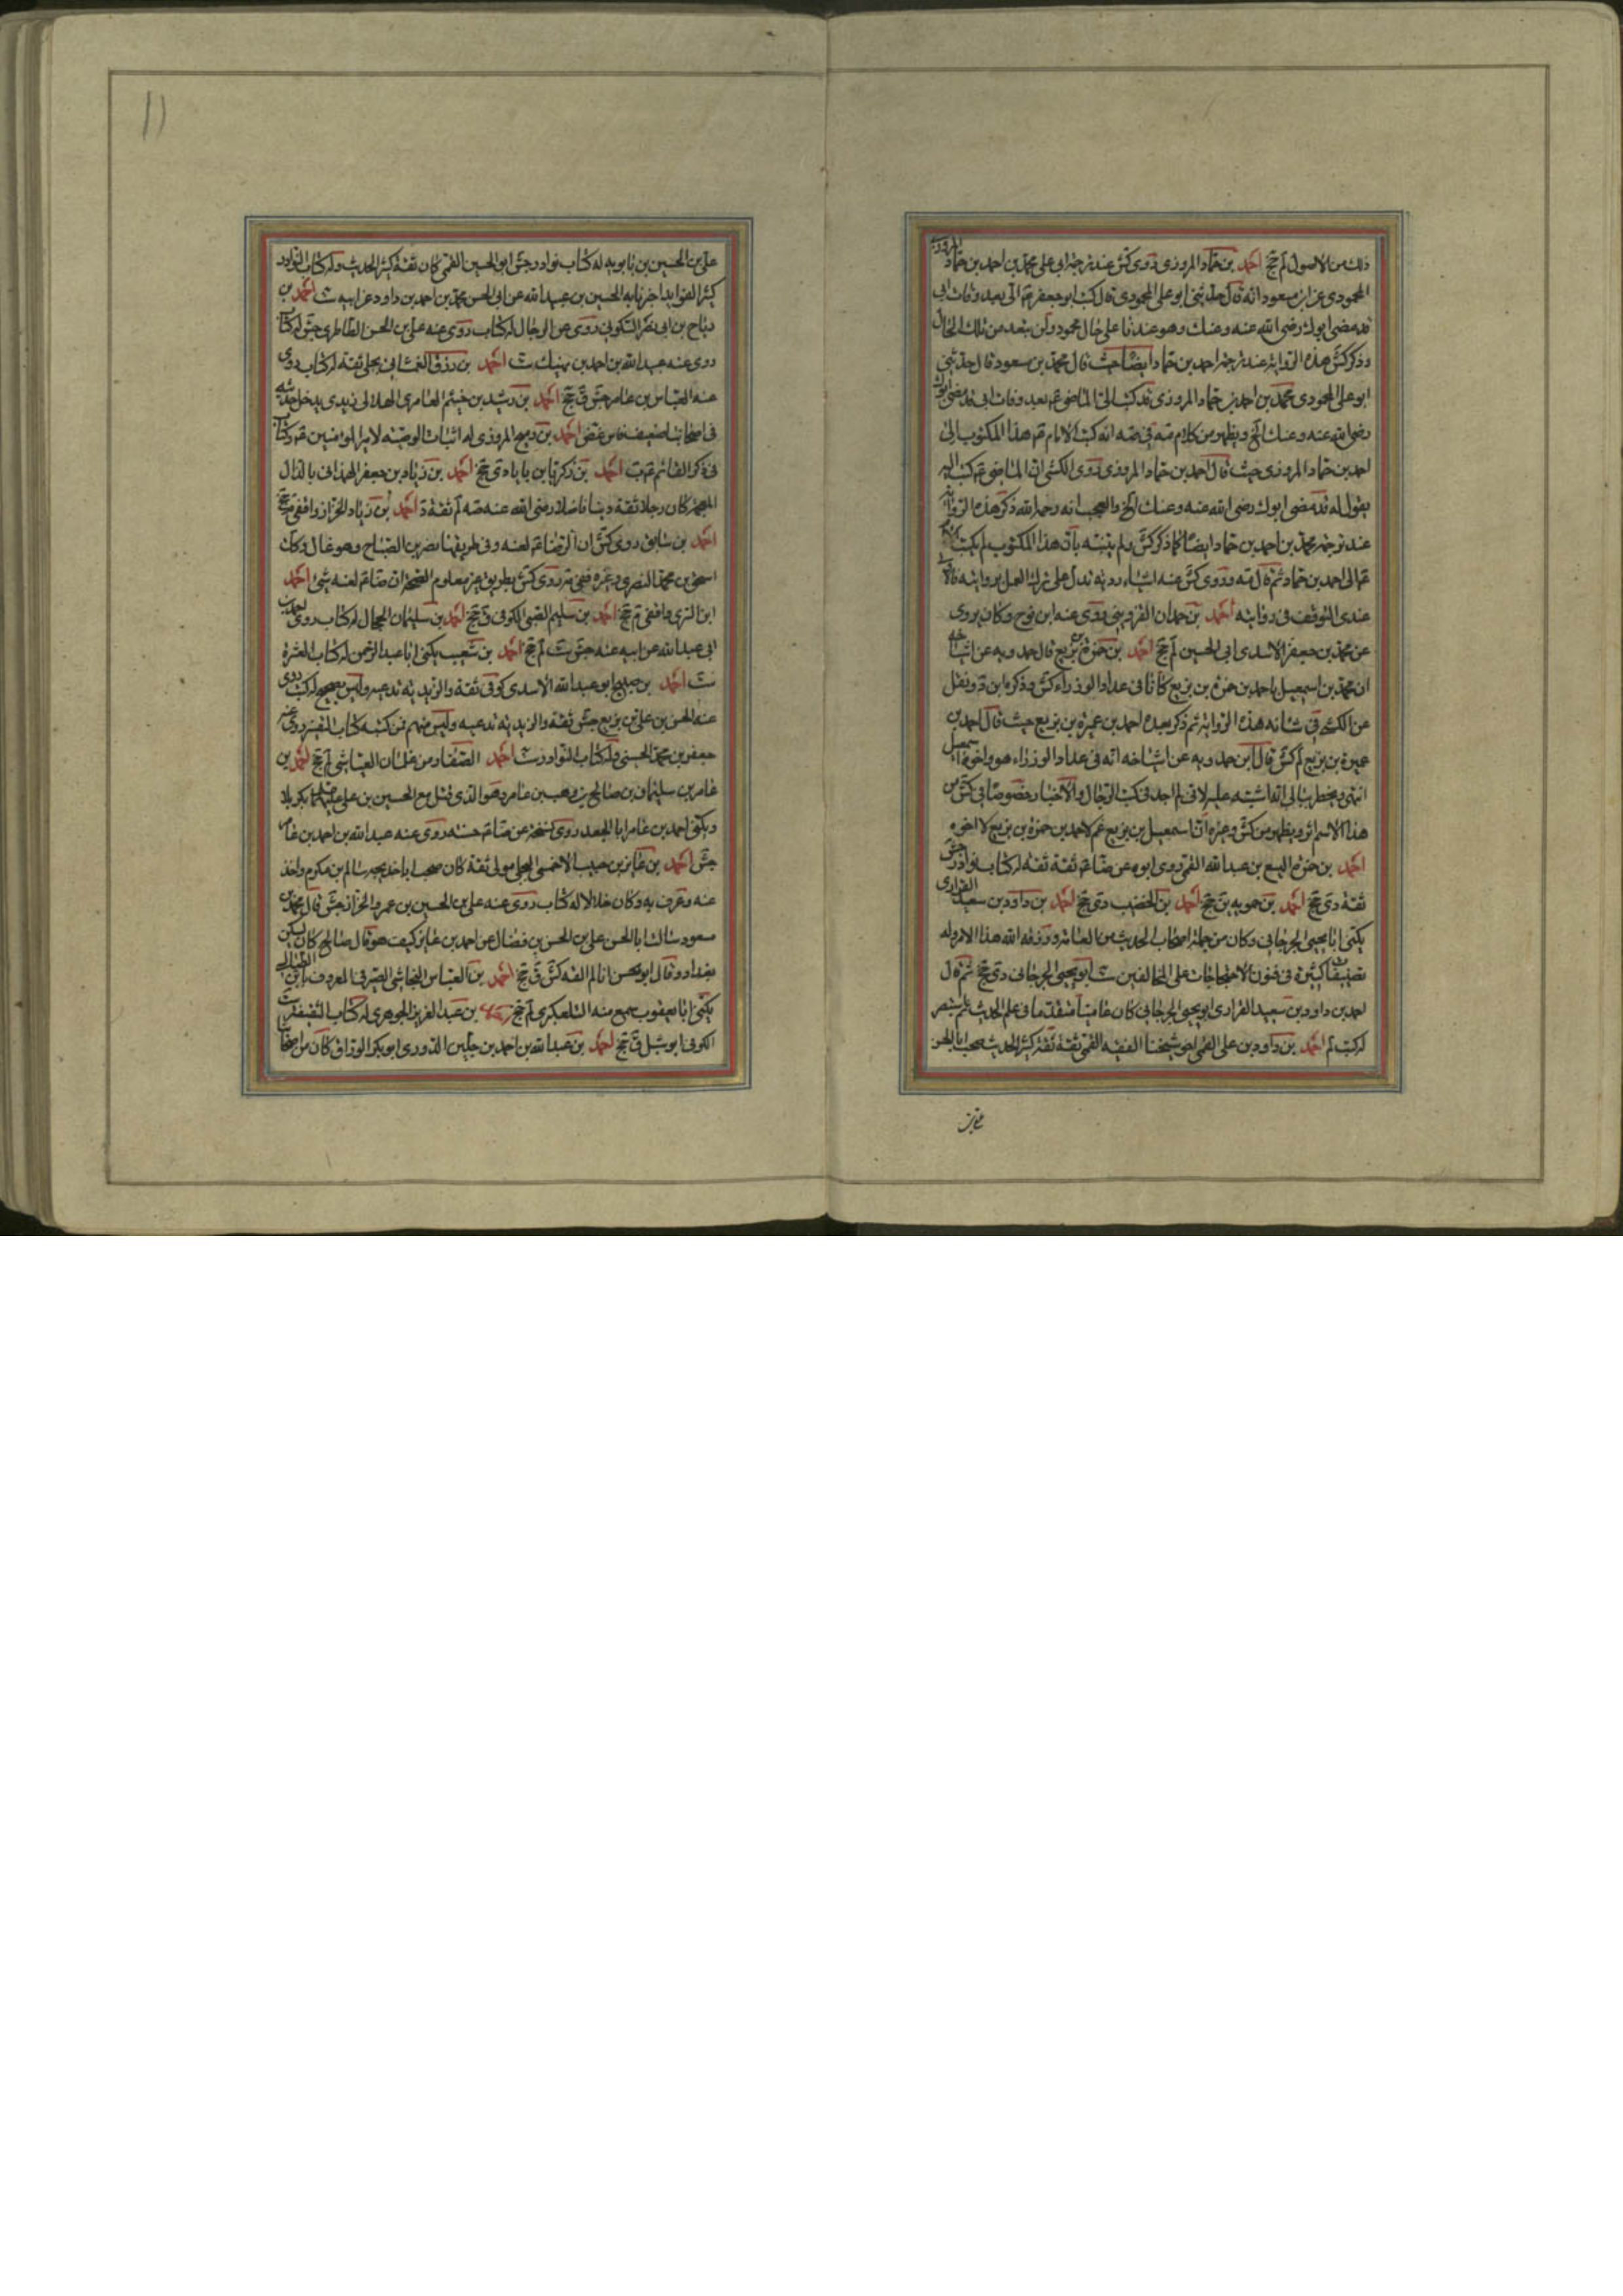 ذلك من الاصول لم جخ احمد بن حماد المروزى روى كش عند ترجمة ابى على محمد بن احمد بن حماد المروزى
المحمودى عن ابن مسعود انه قال حدثنى ابو على المحمودى قال كتب ابو جعفر ع الى بعد وفات ابى
قد مضى ابوك رضى الله عنه وعنك وهو عندنا على حال محمودة ولن تبعد من تلك الحال
وذكر كش هذه الرواية عند ترجمة احمد بن حماد ايضا حيث قال محمد بن مسعود قال حدثنى
ابو على المحمودى محمد بن احمد بن حماد المروزى قد كتب الى الماضى ع بعد وفات ابى قد مضى ابوك
رضى الله عنه وعنك الخ ويظهر من كلام صه انه كتب الامام ع هذا المكتوب الى
احمد بن حماد المروزى حيث قال احمد بن حماد المروزى روى الكشى ان الماضى ع كتب اليه
يقول له قد مضى ابوك رضى الله عنه وعنك الخ والعجب انه رحمه الله ذكر هذه الرواية
عند ترجمة محمد بن احمد بن حماد ايضا كما ذكر كش ولم يتنبه بان هذا المكتوب لم يكتب
الى احمد بن حماد ثم قال صه وروى كش عنه اشياء ردية تدل على ترك العمل بروايته فالاولى
عندى التوقف فى روايته احمد بن حمدان القزوينى روى عنه ابن نوح وكان يروى
عن محمد بن جعفر الاسدى ابى الحسين لم جخ احمد بن حمزة بن بزيع قال حمدويه عن اشياخه
ان محمد بن اسمعيل واحمد بن حمزة بن بزيع كانا فى عداد الوزراء كش وذكره ابن د ونقل
عن الكشى فى شانه هذه الرواية ثم ذكر بعده احمد بن عميرة بن بزيع حيث قال احمد بن
عميرة بن بزيع لم كش قال ابن حمدويه عن اشياخه انه فى عداد الوزراء هو واخوه اسمعيل
انتهى ويخطر ببالى انه اشتبه عليه لانى لم اجد فى كتب الرجال والاخبار خصوصا فى كش من
هذا الاسم اثر ويظهر من كش وغيره ان اسمعيل بن بزيع عم لاحمد بن حمزة بن بزيع لا اخوه
احمد بن حمزة اليسع بن عبد الله القمى روى ابوه عن ضا ع ثقة ثقة له كتاب نوادر جش
ثقة دى جخ احمد بن حمويه بن جخ احمد بن الخضيب دى جخ احمد بن داود بن سعيد الفزارى
يكنى ابا يحيى الجرجانى وكان من جملة اصحاب الحديث من العامة ورزقه الله هذا الامر وله
تصنيفات كثيرة فى فنون الاحتجاجات على المخالفين ست ابو يحيى الجرجانى دى جخ ثم قال
احمد بن داود بن سعيد الفزارى ابو يحيى الجرجانى كان عاميا متقدما فى علم الحديث ثم استبصر
له كتب لم احمد بن داود بن على القمى اخو شيخنا الفقيه القمى ثقة ثقة كثير الحديث صحب ابا الحسن
على بن الحسين بن بابويه له كتاب نوادر جش ابو الحسين القمى كان ثقة كثير الحديث وله كتاب النوادر
كثير الفوايد اخبرنا به الحسين بن عبيد الله عن ابى الحسن محمد بن احمد بن داود عن ابيه ست احمد بن
رباح بن ابى نصر السكونى روى عن الرجال له كتاب روى عنه على بن الحسن الطاطرى جش له كتاب
روى عنه عبيد الله بن احمد بن نهيك ست احمد بن رزق الغمشانى بجلى ثقة له كتاب روى
عنه العباس بن عامر جش ق جخ احمد بن رشيد بن خيثم العامرى الهلالى زيدى يدخل حديثه
فى اصحابنا ضعيف فاسد غض احمد بن رميح المروزى له اثبات الوصية لامير المؤمنين ع وكتاب
فى ذكر القائم ع ب احمد بن زكريا بن بابا دى جخ احمد بن زياد بن جعفر الهمذانى بالذال
المعجمة كان رجلا ثقة دينا فاضلا رضى الله عنه صه لم ثقة د احمد بن زياد الخزاز واقفى م جخ
احمد بن سابق روى كش ان الرضا ع لعنه وفى طريقها نصر بن الصباح وهو غال وكان
اسحق بن محمد البصرى وغيره ففى تر روى كش بطريق غير معلوم الصحة ان ضا ع لعنه شى احمد
ابن السرى واقفى م جخ احمد بن سليم القبى الكوفى ق جخ احمد بن سليمان الحجال له كتاب روى احمد بن
ابى عبد الله عن ابيه عنه جش ست لم جخ احمد بن شعيب يكنى ابا عبد الرحمن له كتاب العشرة
ست احمد بن صبيح ابو عبد الله الاسدى كوفى ثقة والزيدية تدعيه وليس بصحيح له كتب روى
عنه الحسن بن على بن بزيع جش ثقة والزيدية تدعيه وليس منهم فمن كتبه كتاب التفسير روى عنه
جعفر بن محمد الحسينى وله كتاب النوادر ست احمد الصفار من غلمان العياشى لم جخ احمد بن
عامر بن سليمان بن صالح بن وهب بن عامر وهو الذى قتل مع الحسين بن على عليهما بكربلا
ويكنى احمد بن عامر ابا الجعد روى نسخة عن ضا ع حسنة روى عنه عبد الله بن احمد بن عامر
جش احمد بن عايذ بن حبيب الاحمسى البجلى مولى ثقة كان صحب ابا خديجة سالم بن مكرم واخذ
عنه وعرف به وكان خلالا له كتاب روى عنه على بن الحسين بن عمرو الخزاز جش قال محمد بن
مسعود سالت ابا الحسن على بن الحسن بن فضال عن احمد بن عايذ كيف هو قال صالح كان يسكن
بغداد وقال ابو الحسن انا لم القه كش ق جخ احمد بن العباس النجاشى الصيرفى المعروف بابن الطيالسى
يكنى ابا يعقوب سمع منه التلعكبرى لم جخ احمد بن عبد العزيز الجوهرى له كتاب السقيفة ست
الكوفى ابو شبل ق جخ احمد بن عبد الله بن احمد بن جلين الدورى ابو بكر الوراق كان من اصحابنا